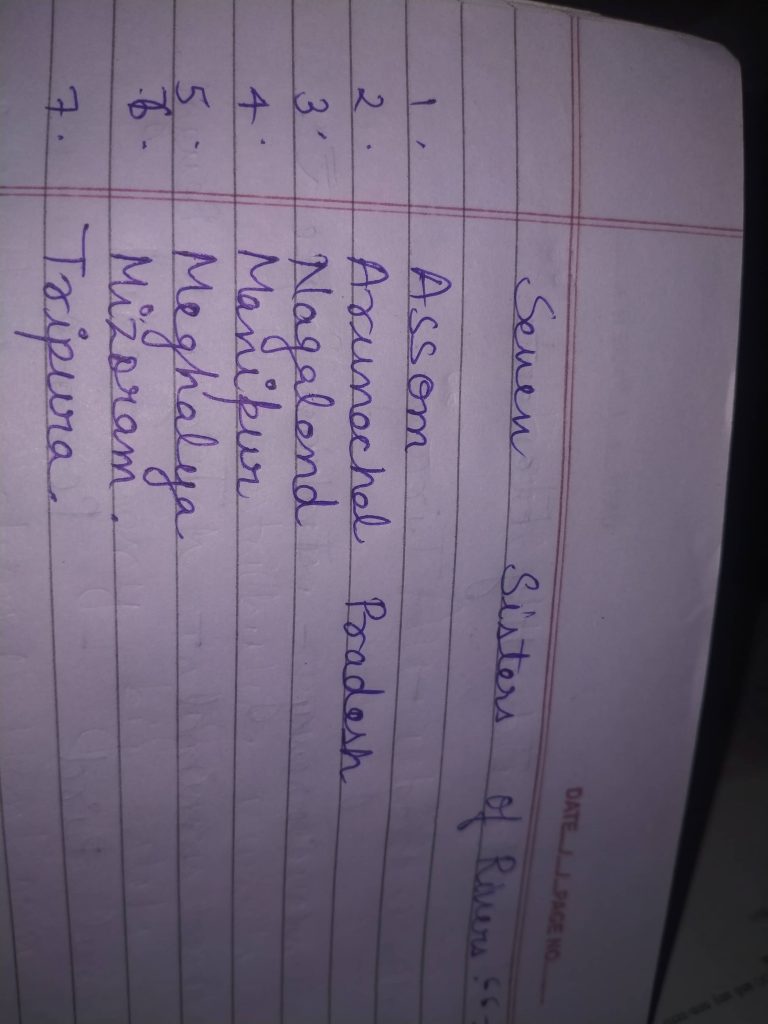 DATE / / PAGE NO.
Seven Sisters of Rivers :-
1. Assom
2. Arunochol Pradesh
3. Nagalond
4. Manipur
5. Meghalya
6. Mizoram.
7. Tripura.